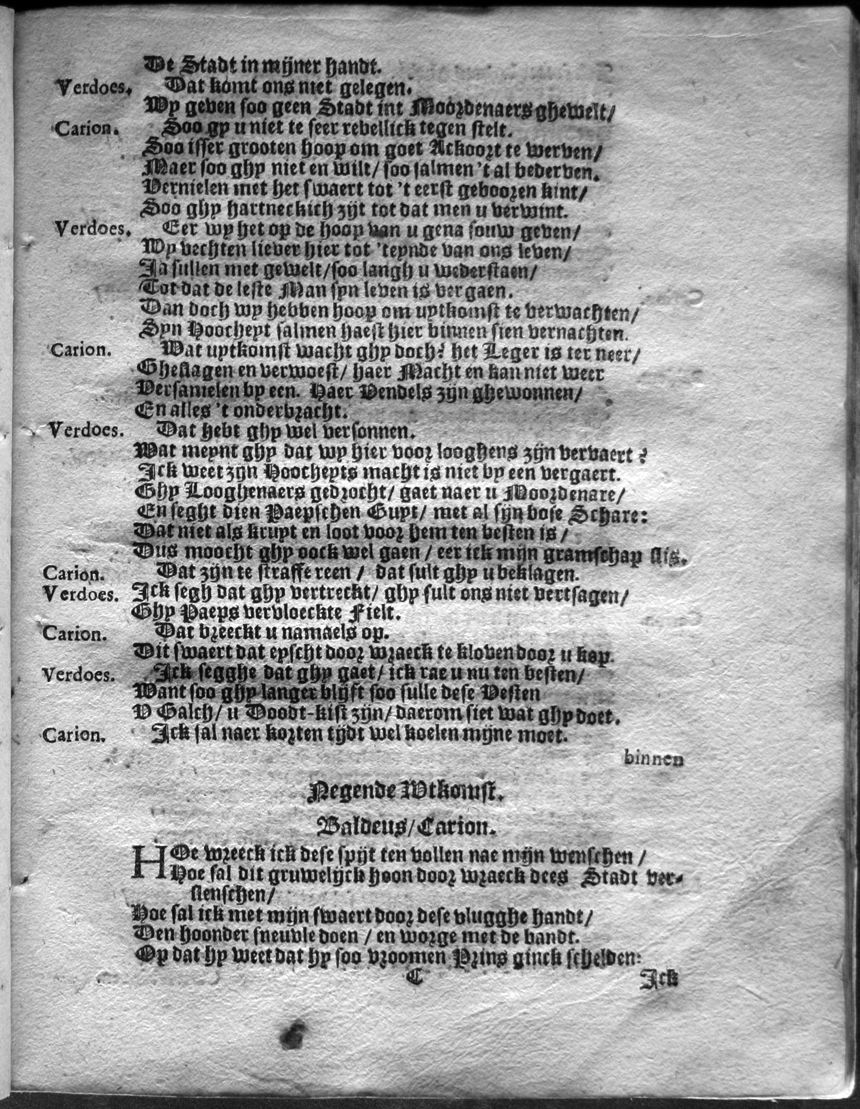 De Stadt in mijner handt.
Verdoes. Dat komt ons niet gelegen.
Wy geven soo geen Stadt int Moordenaers ghewelt/
Carion. Soo gy u niet te seer rebellick tegen stelt.
Soo isser grooten hoop om goet Ackoort te werven/
Maer soo ghy niet en wilt/ soo salmen 't al bederven.
Vernielen met het swaert tot 't eerst gebooren kint/
Soo ghy hartneckich zijt tot dat men u verwint.
Verdoes. Eer wy het op de hoop van u gena souw geven/
Wy vechten liever hier tot 'teynde van ons leven/
Ja sullen met gewelt/soo langh u wederstaen/
Tot dat de leste Man syn leven is vergaen.
Dan doch wy hebben hoop om uytkomst te verwachten/
Syn Hoocheyt salmen haest hier binnen sien vernachten.
Carion. Wat uytkomst wacht ghy doch? het Leger is ter neer/
Gheslagen en verwoest/ haer Macht en kan niet weer
Versamelen by een. Haer Vendels zijn ghewonnen/
En alles 't onderbracht.
Verdoes. Dat hebt ghy wel versonnen.
Wat meynt ghy dat wy hier voor looghens zijn vervaert?
Ick weet zijn Hoocheyts macht is niet by een vergaert.
Ghy Looghenaers gedrocht/ gaet naer u Moordenare/
En seght dien Paepschen Guyt/ met al sijn bose Schare:
Dat niet als kruyt en loot voor hem ten besten is/
Dus moocht ghy oock wel gaen/ eer ick mijn gramschap slis.
Carion. Dat zijn te straffe reen/ dat sult ghy u beklagen.
Verdoes. Ick segh dat ghy vertreckt/ ghy sult ons niet vertsagen/
Ghy Paeps vervloeckte Fielt.
Carion. Dat breeckt u namaels op.
Dit swaert dat eyscht door wraeck te kloven door u kop.
Verdoes. Ick segghe dat ghy gaet/ ick rae u nu ten besten/
Want soo ghy langer blijft soo sulle dese Vesten
V Galch/ u Doodt-kist zijn/ daerom siet wat ghy doet.
Carion. Ick sal naer korten tijdt wel koelen mijne moet.
binnen
Negende Wtkomst.
Baldeus/Carion.
HOe wreeck ick dese spijt ten vollen nae mijn wenschen/
Hoe sal dit gruwelijck hoon door wraeck dees Stadt ver-
slenschen/
Hoe sal ick met mijn swaert door dese vlugghe handt/
Den hoonder sneuvle doen/ en worge met de bandt.
Op dat hy weet dat hy soo vroomen Prins ginck schelden:
C Ick